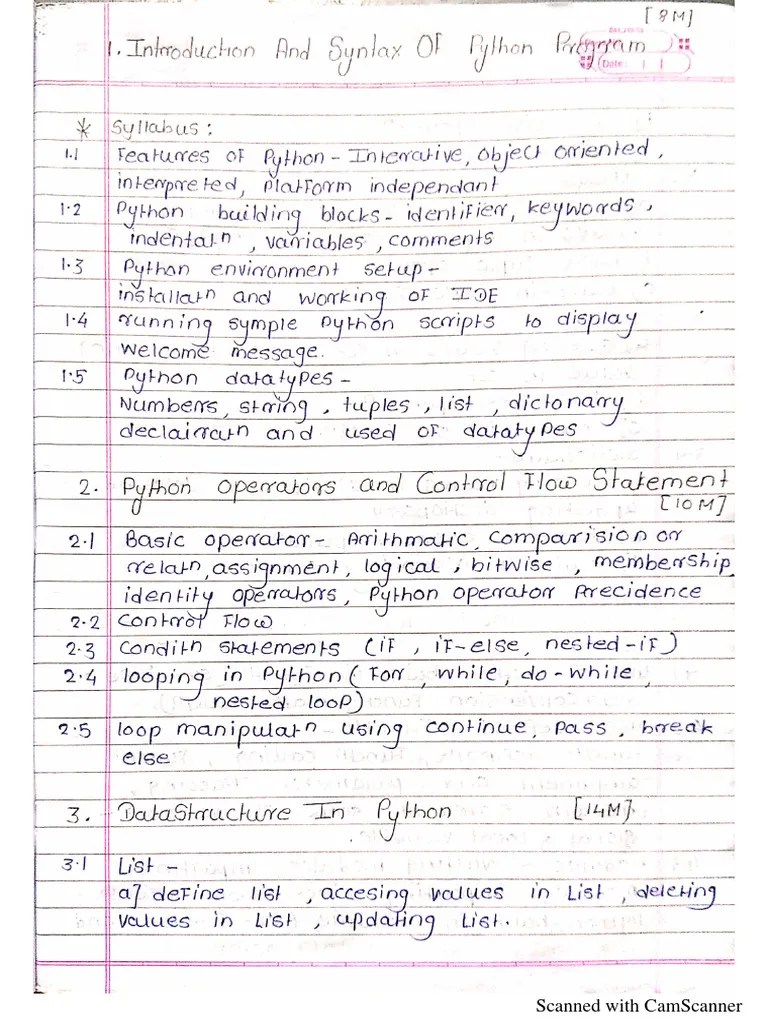 [8M]
1. Introduction And Syntax Of Python Program
Date: / /
* Syllabus:
1.1 Features of Python - Interrative, object orriented,
interpreted, Platform independant
1.2 Python building blocks - identifier, keywords,
indentatⁿ, variables, comments
1.3 Python environment setup -
installatⁿ and working of IDE
1.4 running symple Python scripts to display
welcome message.
1.5 Python datatypes -
Numbers, string, tuples, list, dictonary
declairratⁿ and used of datatypes
2. Python operators and Control Flow Statement
[10M]
2.1 Basic operator - Arithmatic, comparision or
relatⁿ, assignment, logical, bitwise, membership,
identity operators, Python operator Precidence
2.2 Control Flow
2.3 Conditⁿ statements (if, if-else, nested-if)
2.4 looping in Python (for, while, do-while,
nested loop)
2.5 loop manipulatⁿ using continue, pass, break
else
3. DataStructure In Python [14M].
3.1 List -
a] define list, accesing values in List, deleting
values in List, updating List.
Scanned with CamScanner